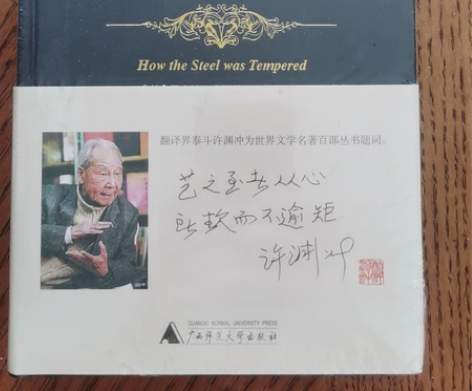 How the Steel was Tempered
翻译界泰斗许渊冲为世界文学名著百部丛书题词。
艺之至者从心
所欲而不逾矩
许渊冲
GUANGXI NORMAL UNIVERSITY PRESS
广西师范大学出版社